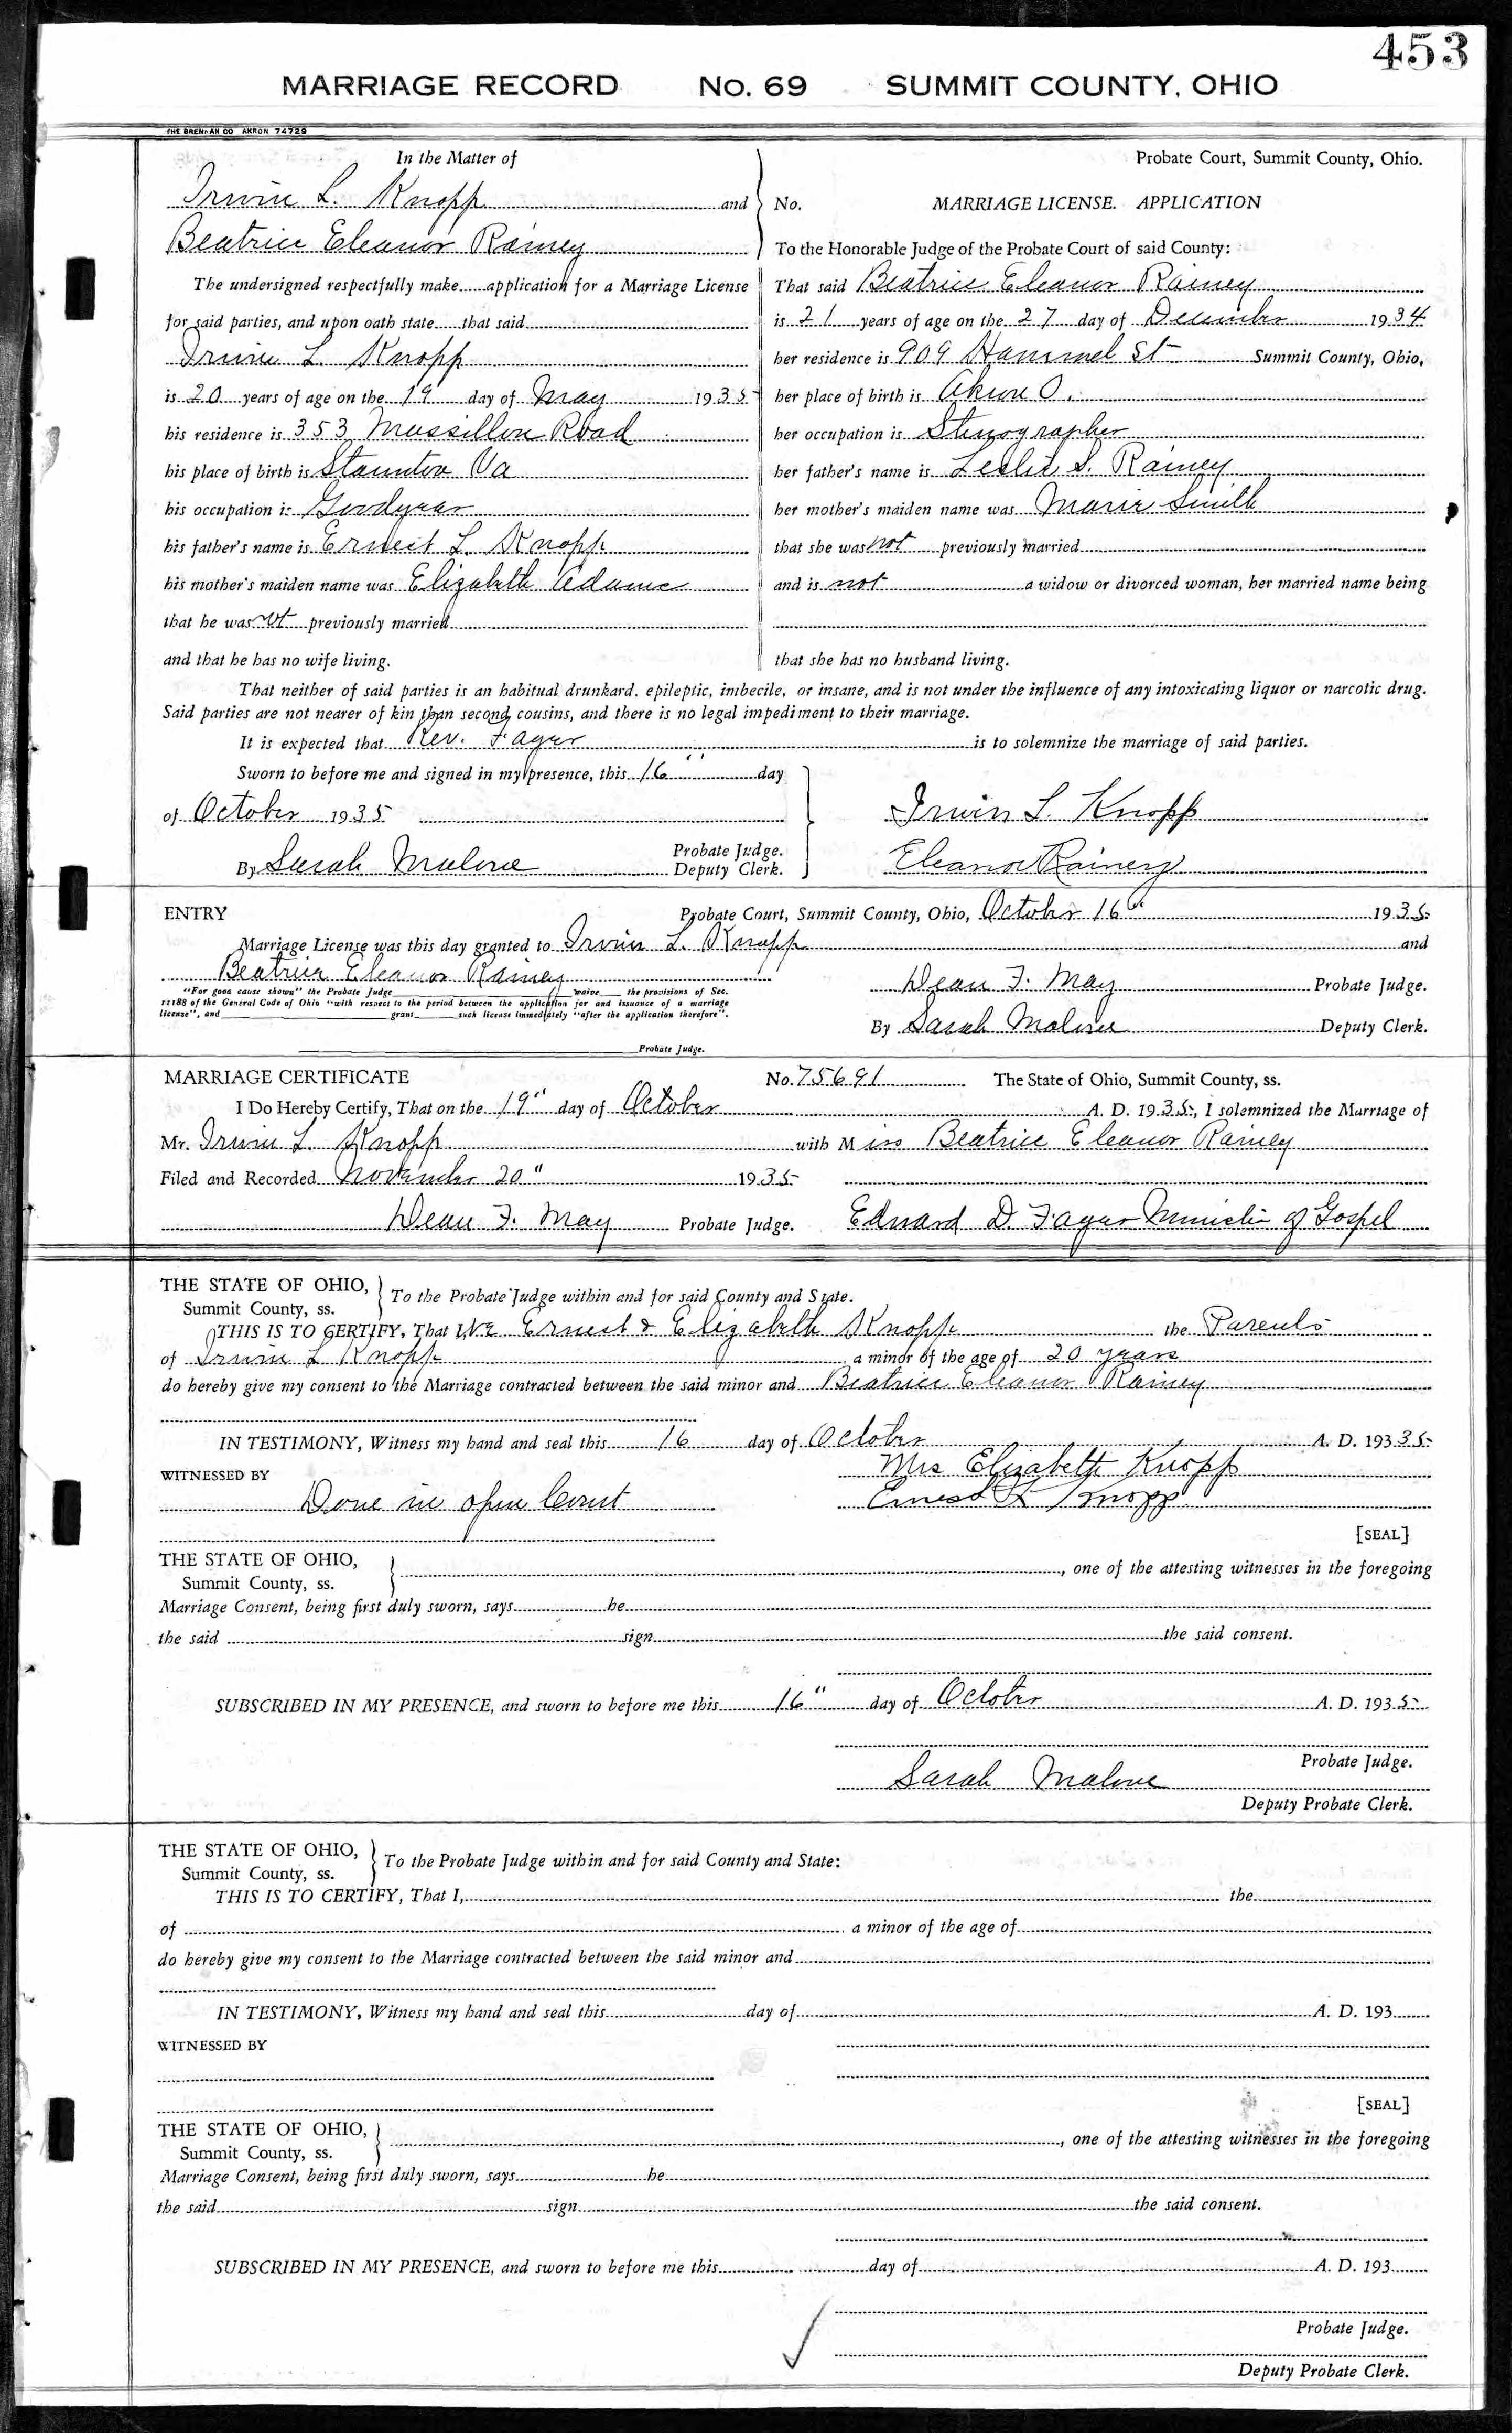 453
MARRIAGE RECORD No. 69 SUMMIT COUNTY, OHIO
THE BRENNAN CO AKRON 74729
In the Matter of
Irwin L. Knopp and
Beatrice Eleanor Rainey
The undersigned respectfully make application for a Marriage License
for said parties, and upon oath state that said
Irwin L. Knopp
is 20 years of age on the 19 day of May 1935
his residence is 353 Massillon Road
his place of birth is Staunton Va
his occupation is Goodyear
his father's name is Ernest L. Knopp
his mother's maiden name was Elizabeth Adams
that he was not previously married
and that he has no wife living.
Probate Court, Summit County, Ohio.
No. MARRIAGE LICENSE. APPLICATION
To the Honorable Judge of the Probate Court of said County:
That said Beatrice Eleanor Rainey
is 21 years of age on the 27 day of December 1934
her residence is 909 Hammel St Summit County, Ohio,
her place of birth is Akron O.
her occupation is Stenographer
her father's name is Leslie S. Rainey
her mother's maiden name was Marie Smith
that she was not previously married
and is not a widow or divorced woman, her married name being
that she has no husband living.
That neither of said parties is an habitual drunkard, epileptic, imbecile, or insane, and is not under the influence of any intoxicating liquor or narcotic drug.
Said parties are not nearer of kin than second cousins, and there is no legal impediment to their marriage.
It is expected that Rev. Fager is to solemnize the marriage of said parties.
Sworn to before me and signed in my presence, this 16" day
of October 1935
Probate Judge.
By Sarah Malone Deputy Clerk.
Irwin L. Knopp
Eleanor Rainery
ENTRY Probate Court, Summit County, Ohio, October 16" 1935
Marriage License was this day granted to Irwin L. Knopp and
Beatrice Eleanor Rainey
"For good cause shown" the Probate Judge waive the provisions of Sec.
11188 of the General Code of Ohio "with respect to the period between the application for and issuance of a marriage
license", and grant such license immediately "after the application therefore".
Probate Judge.
Dean F. May Probate Judge.
By Sarah Malone Deputy Clerk.
MARRIAGE CERTIFICATE No. 75691 The State of Ohio, Summit County, ss.
I Do Hereby Certify, That on the 19" day of October A. D. 1935, I solemnized the Marriage of
Mr. Irwin L. Knopp with Miss Beatrice Eleanor Rainey
Filed and Recorded November 20" 1935
Dean F. May Probate Judge. Edward D. Fager Minister of Gospel
THE STATE OF OHIO,
Summit County, ss.
To the Probate Judge within and for said County and State.
THIS IS TO CERTIFY, That We Ernest & Elizabeth Knopp the Parents
of Irwin L Knopp a minor of the age of 20 years
do hereby give my consent to the Marriage contracted between the said minor and Beatrice Eleanor Rainey
IN TESTIMONY, Witness my hand and seal this 16 day of October A. D. 193 35
WITNESSED BY
Mrs Elizabeth Knopp
Done in open Court
Ernest L Knopp
[SEAL]
THE STATE OF OHIO,
Summit County, ss.
, one of the attesting witnesses in the foregoing
Marriage Consent, being first duly sworn, says he
the said sign the said consent.
SUBSCRIBED IN MY PRESENCE, and sworn to before me this 16" day of October A. D. 1935
Probate Judge.
Sarah Malone
Deputy Probate Clerk.
THE STATE OF OHIO,
Summit County, ss.
To the Probate Judge within and for said County and State:
THIS IS TO CERTIFY, That I, the
of a minor of the age of
do hereby give my consent to the Marriage contracted between the said minor and
IN TESTIMONY, Witness my hand and seal this day of A. D. 193
WITNESSED BY
[SEAL]
THE STATE OF OHIO,
Summit County, ss.
, one of the attesting witnesses in the foregoing
Marriage Consent, being first duly sworn, says he
the said sign the said consent.
SUBSCRIBED IN MY PRESENCE, and sworn to before me this day of A. D. 193
Probate Judge.
Deputy Probate Clerk.